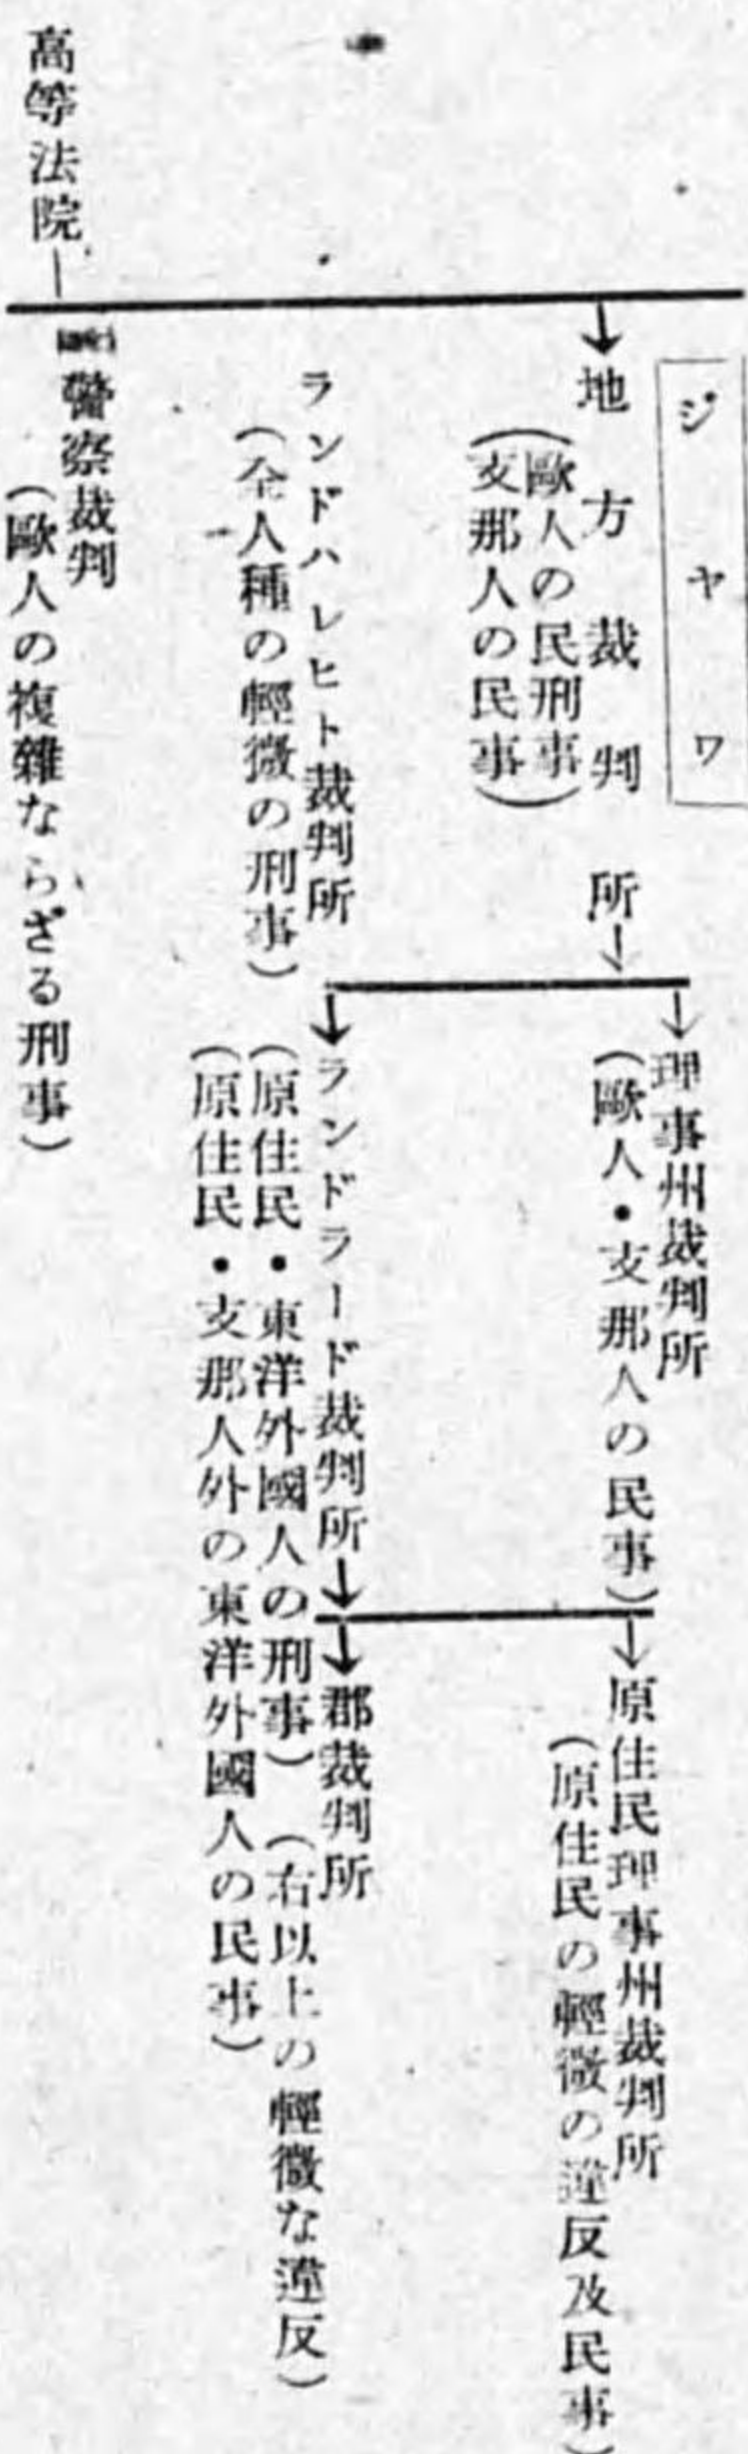 ジヤワ
地方裁判所
(歐人の民刑事)
(支那人の民事)
理事州裁判所
(歐人・支那人の民事)
原住民理事州裁判所
(原住民の輕微の違反及民事)
ランドラード裁判所
(原住民・東洋外國人の刑事)
(原住民・支那人外の東洋外國人の民事)
郡裁判所
(右以上の輕微な違反)
ランドハレヒト裁判所
(全人種の輕微の刑事)
高等法院
警察裁判
(歐人の複雜ならざる刑事)